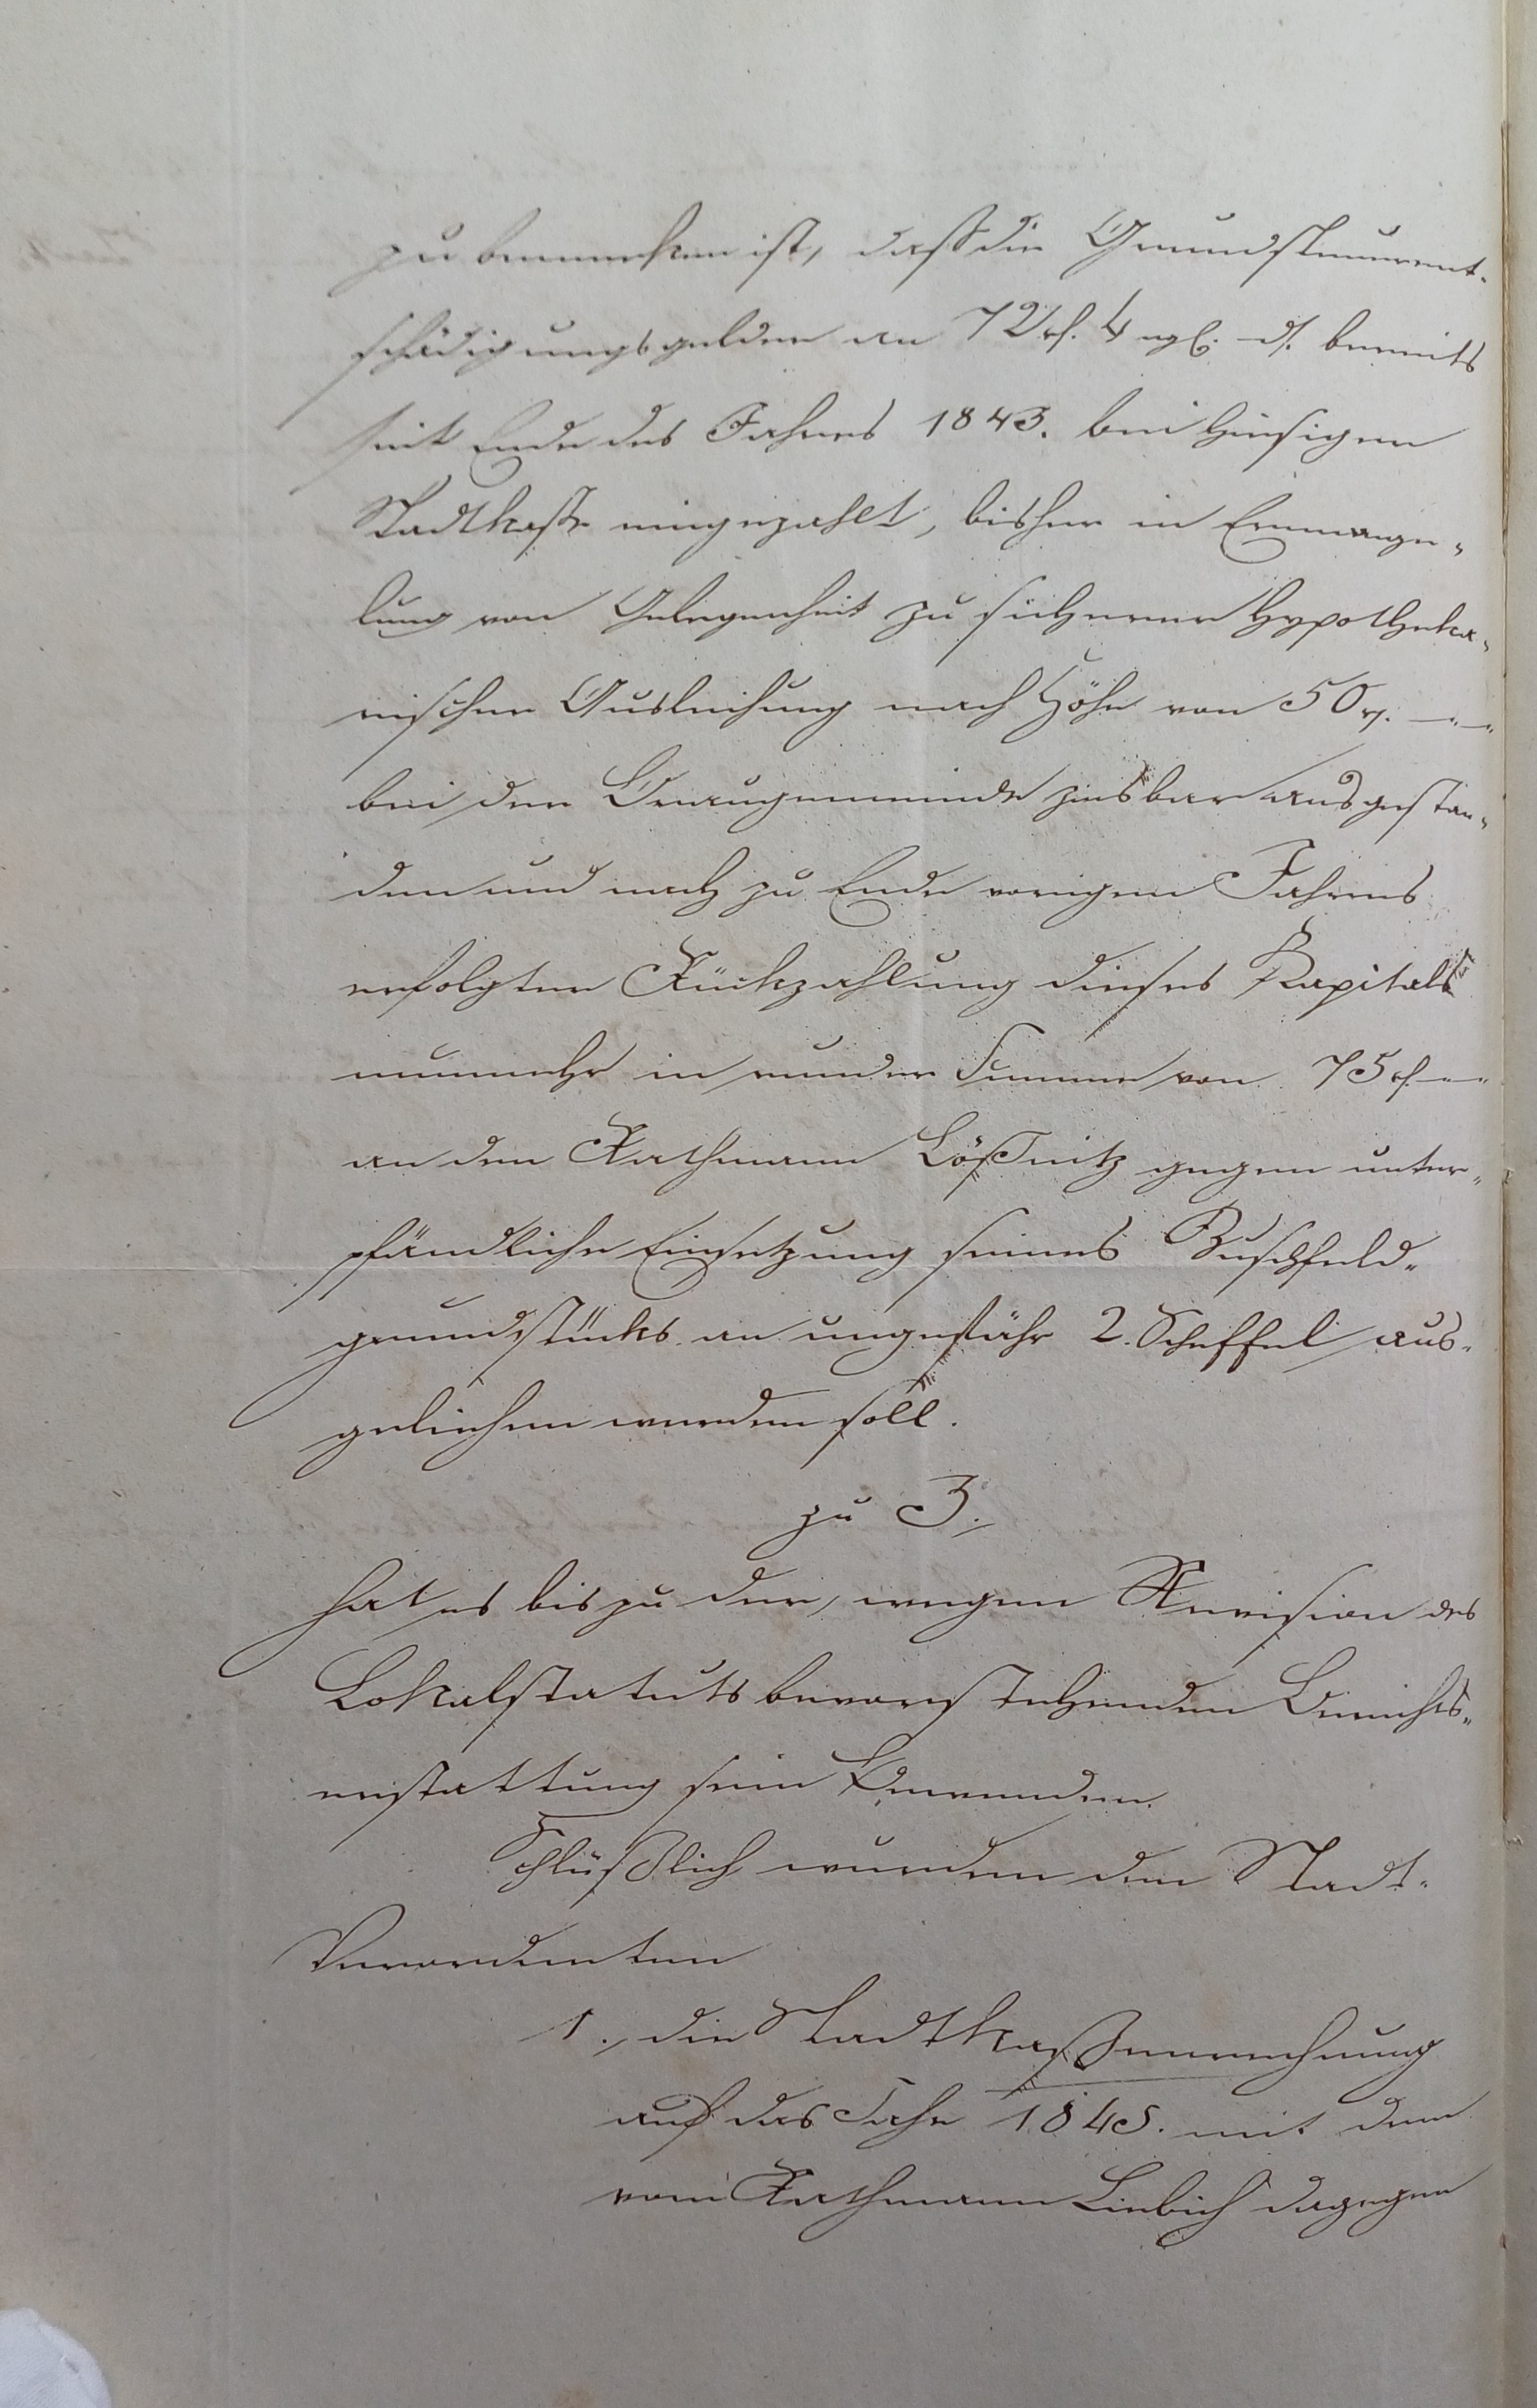 zu bemerken ist, daß die Grundsteuerent-
schädigungsgelder an 72 rl. 4 ngl. - d. bereits
seit Ende des Jahres 1843. bei hiesigen
Stadtkasse eingezahlt, bisher in Ermange-
lung von Gelegenheit zu sicherer hypotheka-
rischer Ausleihung nach Höhe von 50 rl. - -
bei der zinsbar ausgestan-
den und nach zu Ende vorigen Jahres
erfolgter Rückzahlung dieses Kapitals
nunmehr in runder Summe von 75 rl. - -
an den Rathmann Lößnitz gegen unter-
pfändliche Einsetzung seines Buschfeld-
grundstücks an ungefähr 2. Scheffel aus-
geliehen werden soll.
zu 3.
hat es bis zu der, wegen Revision des
Lokalstatuts bevorstehenden Berichts-
erstattung sein Bewenden.
Schlüßlich wurden den Stadt-
Verordneten
1., die Stadtkaßenrechnung
auf das Jahr 1845. mit dem
vom Rathmann Liebich dagegen